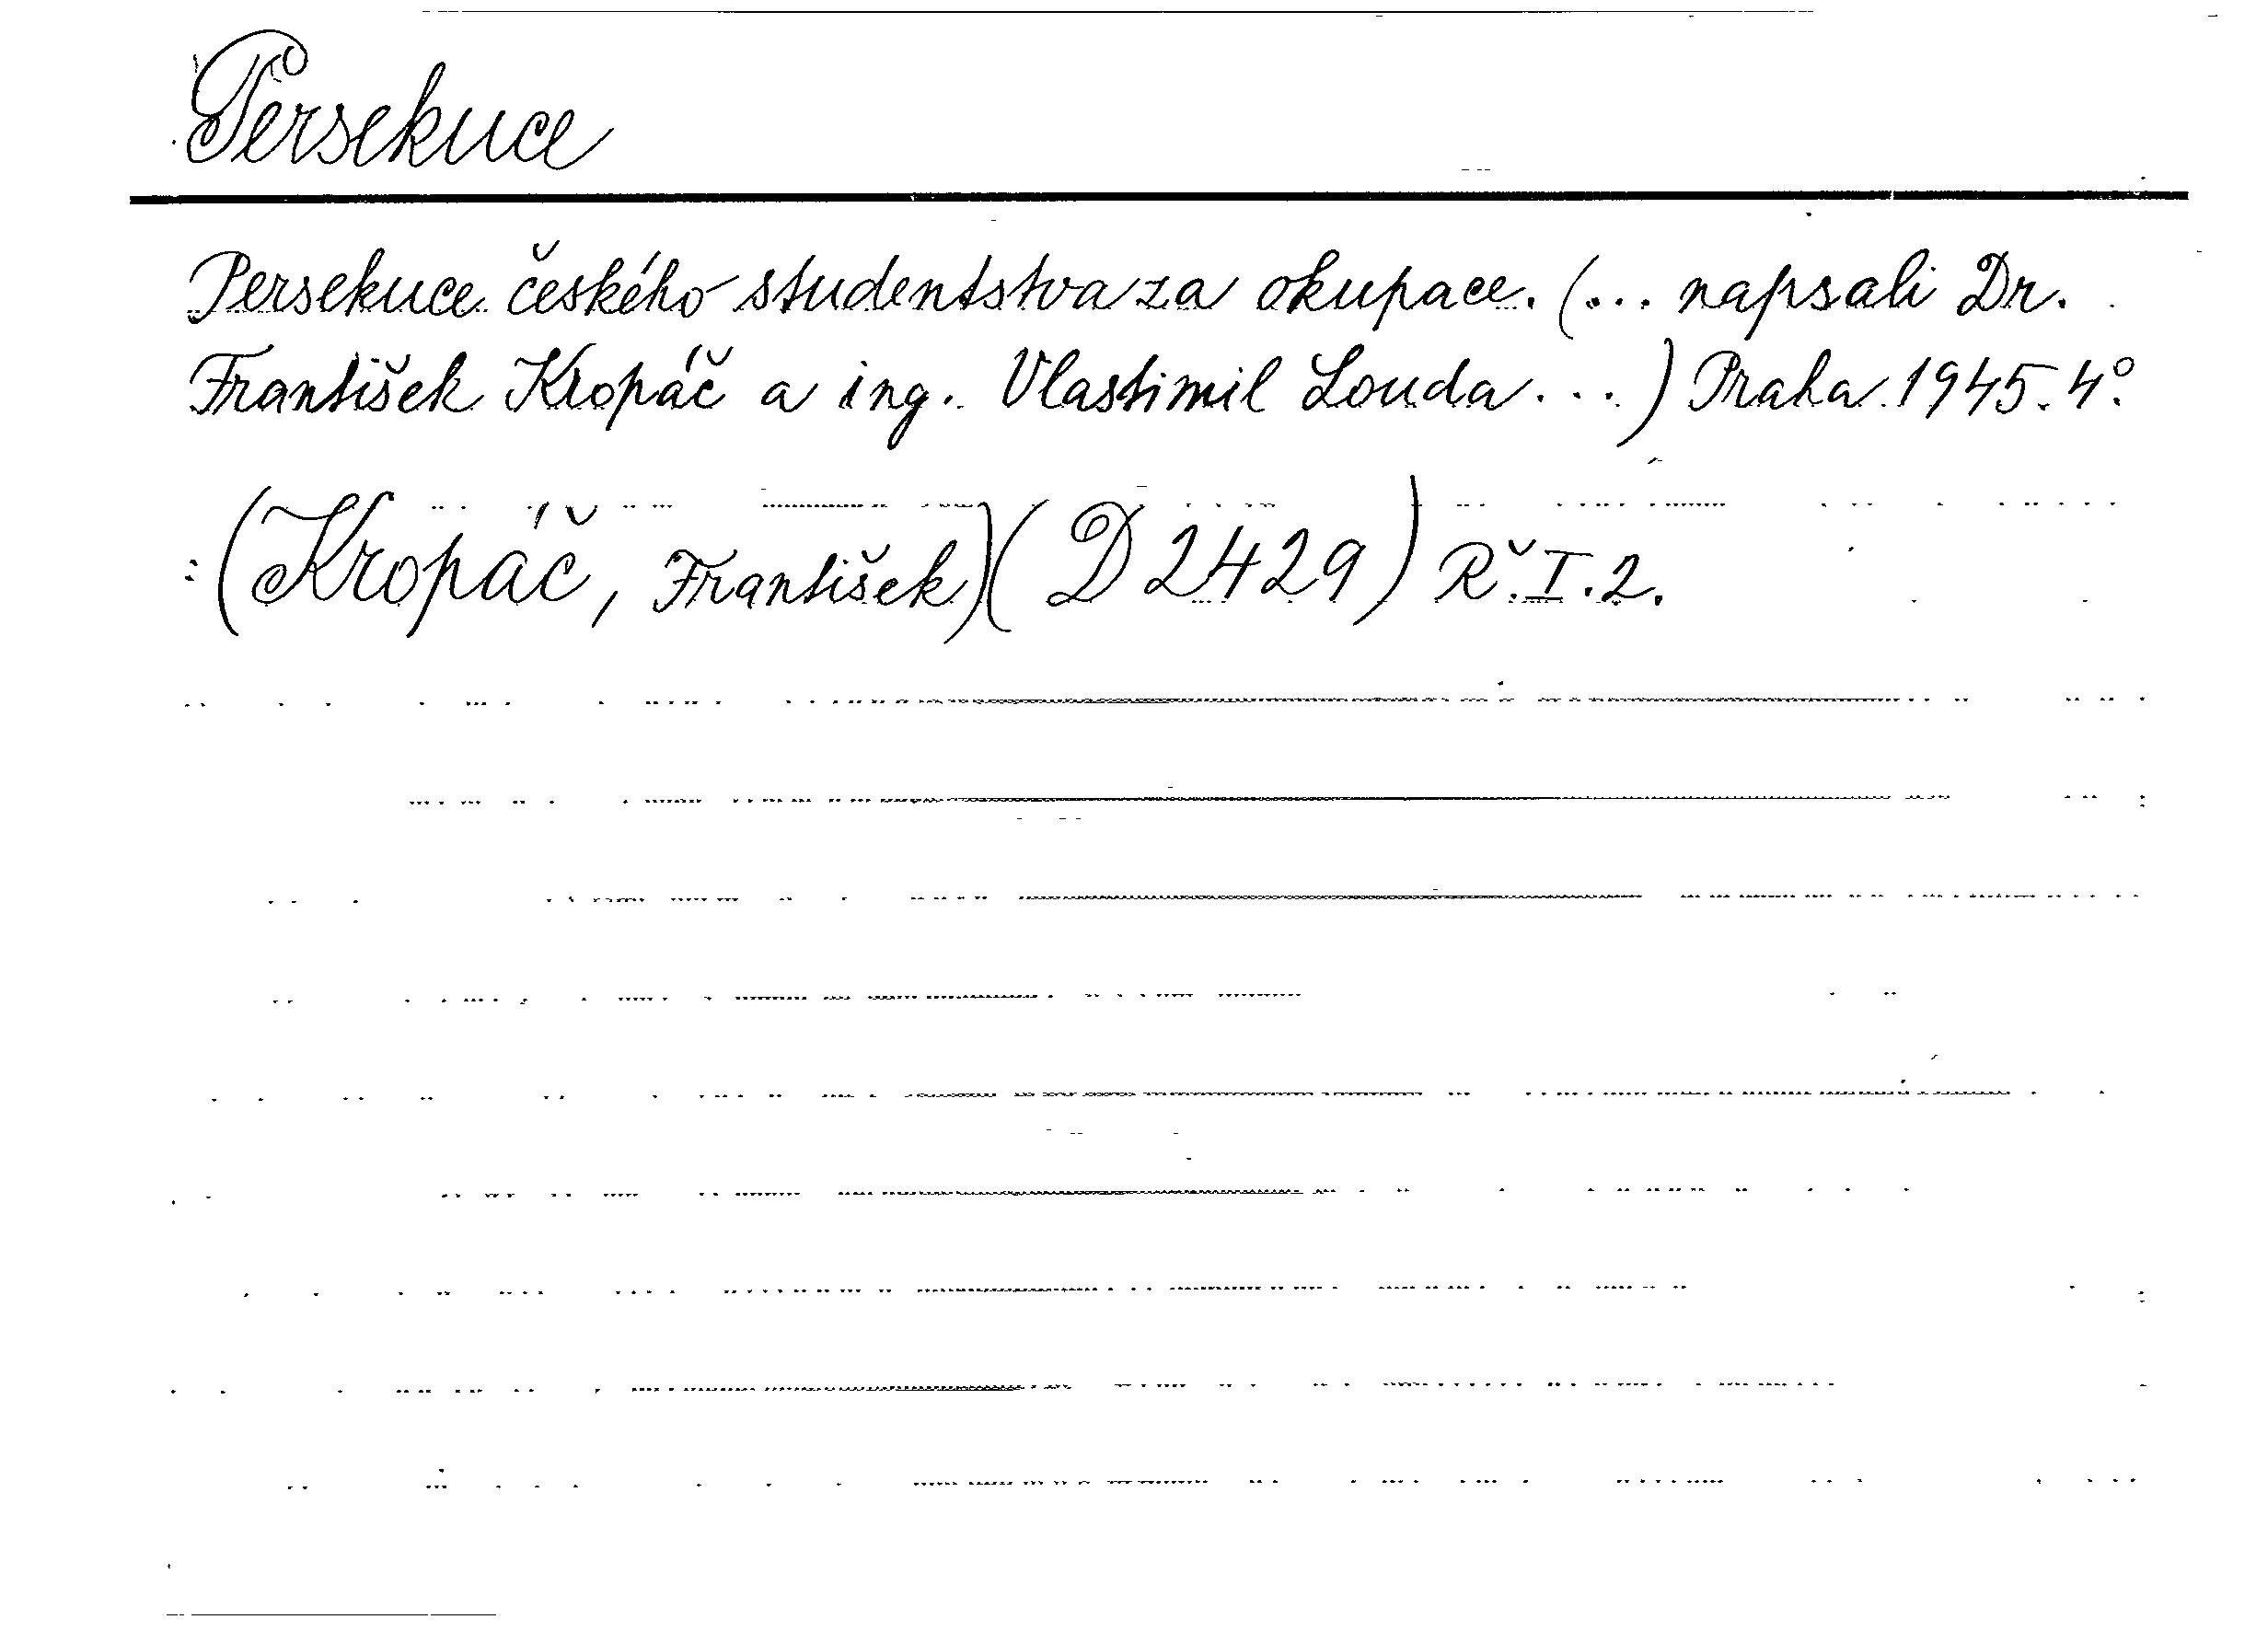 Persekuce
Persekuce českého studentstva za okupace. (... napsali Dr.
František Kropáč a ing. Vlastimil Louda...) Praha 1945. 4°.
(Kropáč, František) (D 2429) Ř. I. 2.